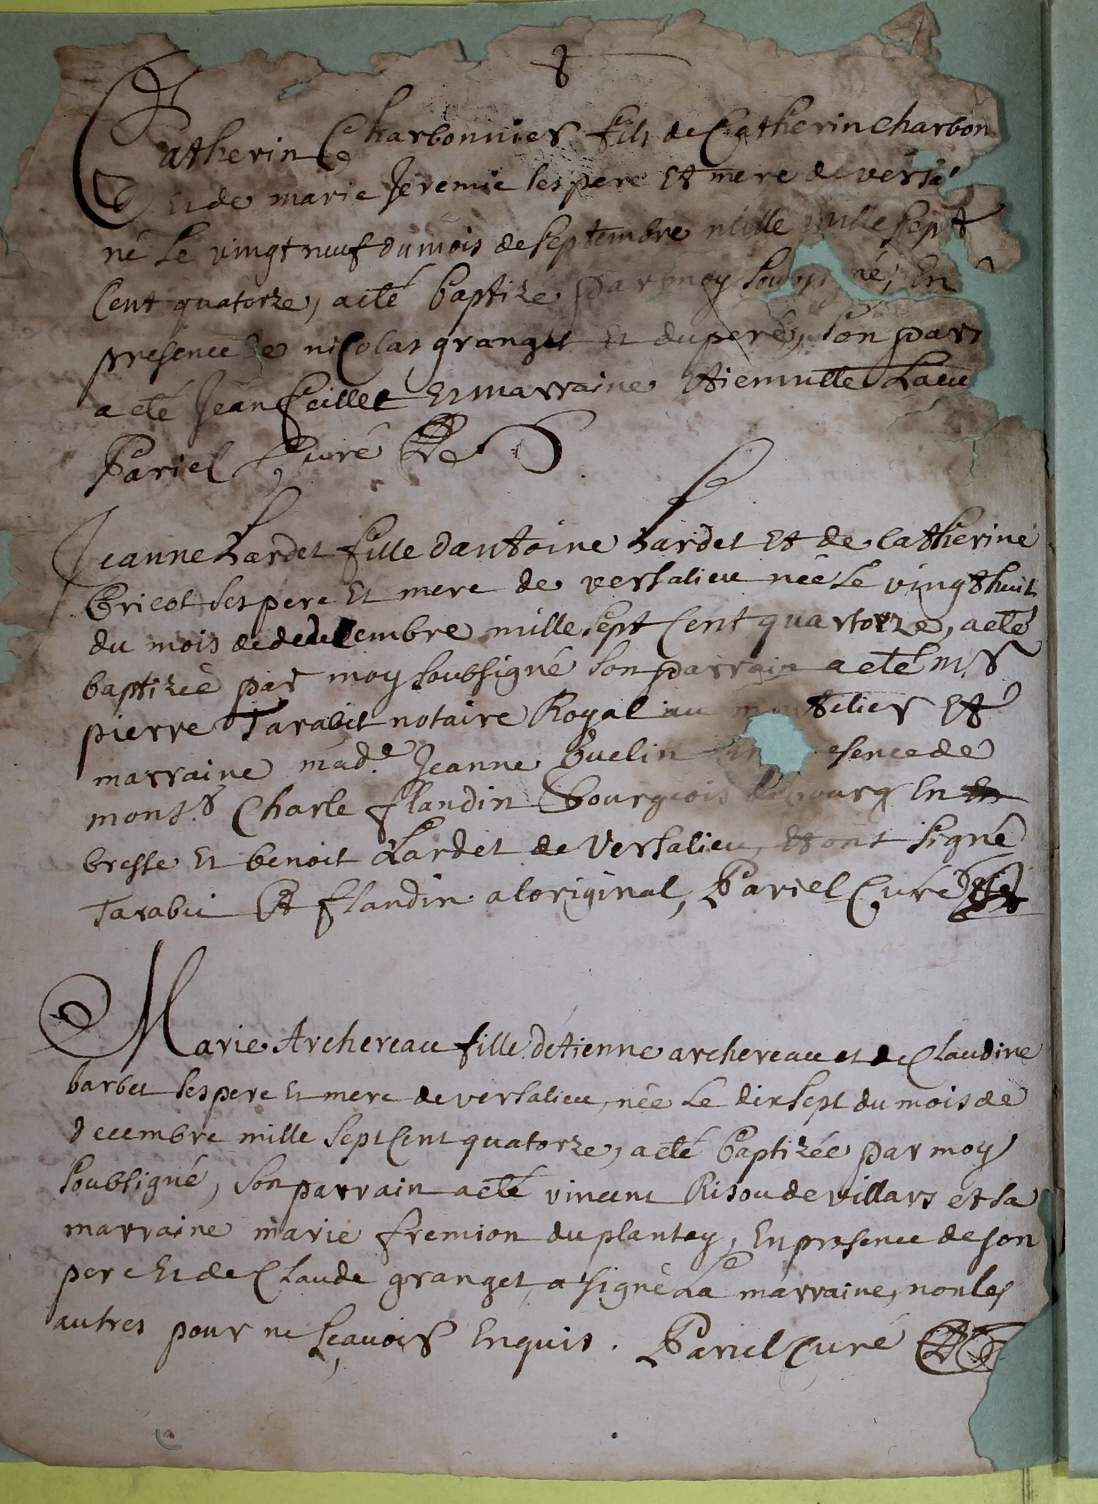 Catherin Charbonnier fils de Catherin charbon
Et de marie Jeremie ses pere Et mere de versa
né Le vingt neuf du mois de septembre mille mille sept
Cent quatorze, a eté baptize par moy soubs né, En
presence de nicolas granget et du pere, son parr
a eté Jean feillet Et marraine
Pariel Curé
Jeanne Lardet fille dantoine Lardet Et de Catherine
Bricot ses pere Et mere de versalieu née Le vingt huit
du mois de dedecembre mille sept Cent quatorze, a eté
baptizée par moy soubsigné son parrain a eté mr
pierre Tarabit notaire Royal au telier Et
marraine made Jeanne Guelin esence de
monsr Charle flandin bourgeois de bourg En
bresse Et benoit Lardet de Versalieu, Et ont signé
Tarabit Et flandin a loriginal, Pariel Curé
Marie Archereau fille détienne archereau et de Claudine
barbet ses pere Et mere de versalieu, née Le dix sept du mois de
decembre mille sept Cent quatorze, a eté baptizée par moy
soubsigné, son parrain a eté vincent Risou de villars et sa
marraine marie fremion du plantay, En presence de son
pere Et de Claude granget, a signé La marraine, non les
autres pour ne sçavoir Enquis. Pariel Curé